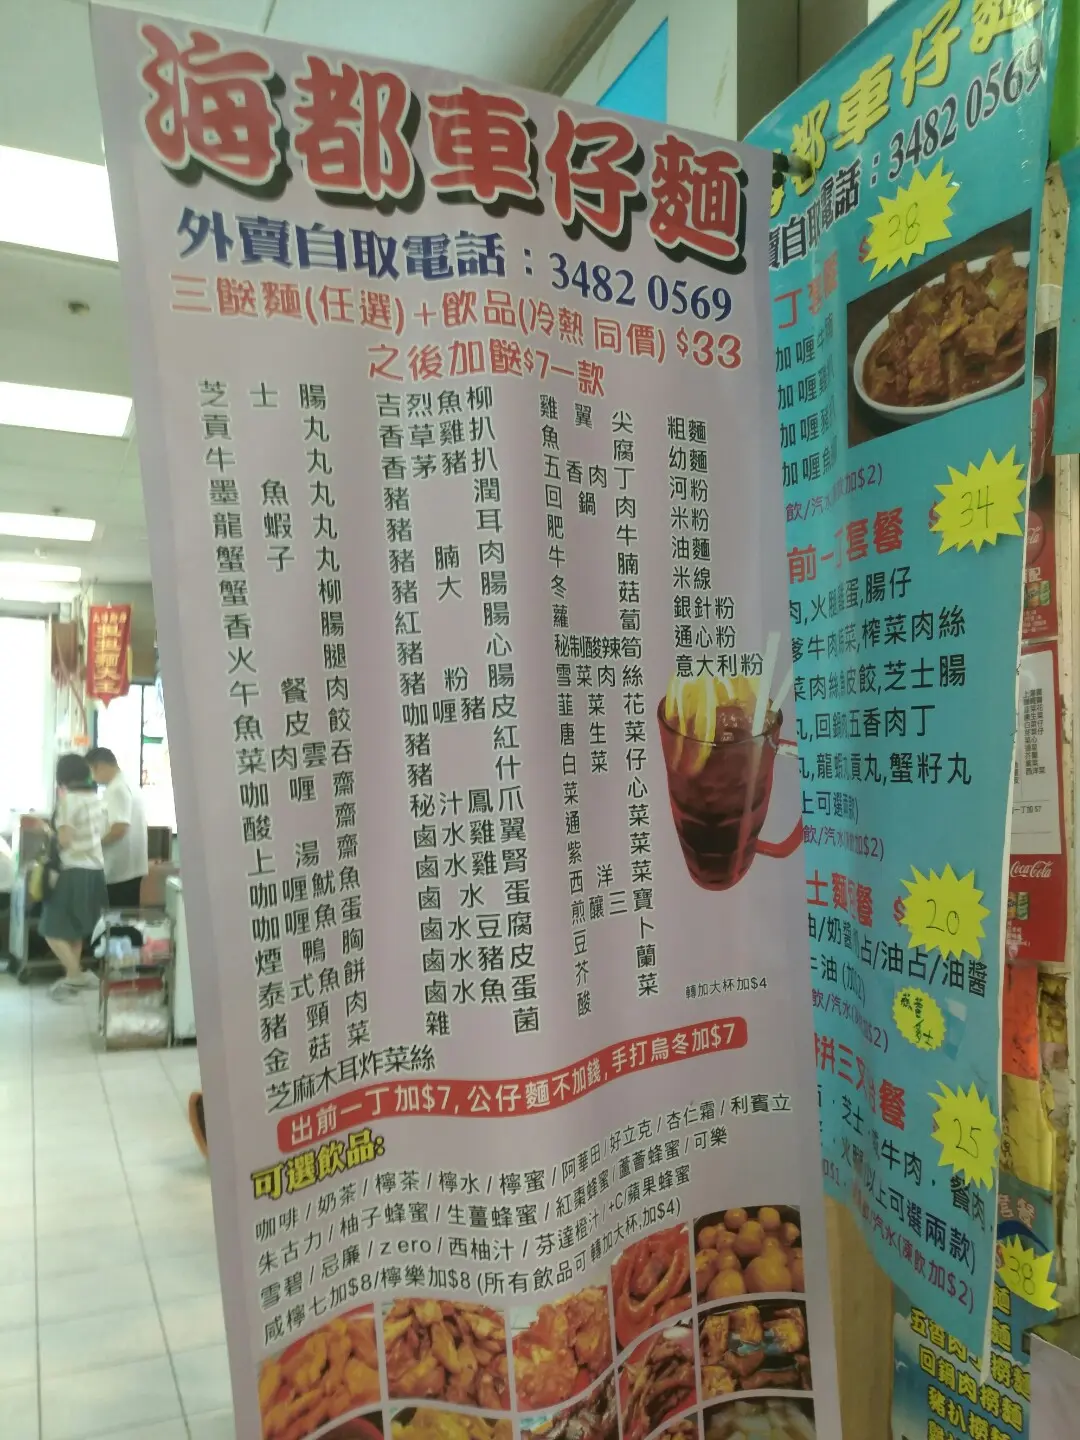 海都車仔麵
外賣自取電話：3482 0569
三餸麵(任選)＋飲品(冷熱同價) $33
之後加餸$7一款
芝士腸
貢丸
牛丸
墨魚丸
龍蝦丸
蟹子丸
蟹柳
香腸
火腿
午餐肉
魚皮餃
菜肉雲吞
咖喱齋
酸齋
上湯齋
咖喱魷魚
咖喱魚蛋
煙鴨胸
泰式魚餅
豬頸肉
金菇菜
芝麻木耳炸菜絲
吉烈魚柳
香草雞扒
香茅豬扒
豬潤
豬耳
豬腩肉
豬大腸
紅腸
豬心
豬粉腸
咖喱豬皮
豬紅
豬什
秘汁鳳爪
鹵水雞翼
鹵水雞腎
鹵水蛋
鹵水豆腐
鹵水豬皮
鹵水魚蛋
雜菌
雞翼尖
魚腐
五香肉丁
回鍋肉
肥牛
牛腩
冬菇
蘿蔔
秘制酸辣筍
雪菜肉絲
韮菜花
唐生菜
白菜仔
菜心
通菜
紫菜
西洋菜
煎釀三寶
豆卜
芥蘭
酸菜
粗麵
幼麵
河粉
米粉
油麵
米線
銀針粉
通心粉
意大利粉
轉加大杯加$4
出前一丁加$7, 公仔麵不加錢, 手打烏冬加$7
可選飲品:
咖啡/奶茶/檸茶/檸水/檸蜜/阿華田/好立克/杏仁霜/利賓立
朱古力/柚子蜂蜜/生薑蜂蜜/紅棗蜂蜜/蘆薈蜂蜜/可樂
雪碧/忌廉/zero/西柚汁/芬達橙汁/+C/蘋果蜂蜜
咸檸七加$8/檸樂加$8 (所有飲品可轉加大杯,加$4)
都車仔麵
自取電話：3482 0569
$38
加喱
加喱
加喱
加喱
加$2)
$34
前一丁套餐
肉,火腿,雞蛋,腸仔
榨菜肉絲
皮餃,芝士腸
回鍋肉五香肉丁
貢丸,蟹籽丸
上可選兩款)
飲/汽水
加$2)
$20
油/奶醬
占/油占/油醬
牛油
$25
芝士
牛肉．餐肉．
以上可選兩款)
汽水(凍飲加$2)
38
Coca-Cola
五香肉丁撈麵
回鍋肉撈麵
豬扒撈麵